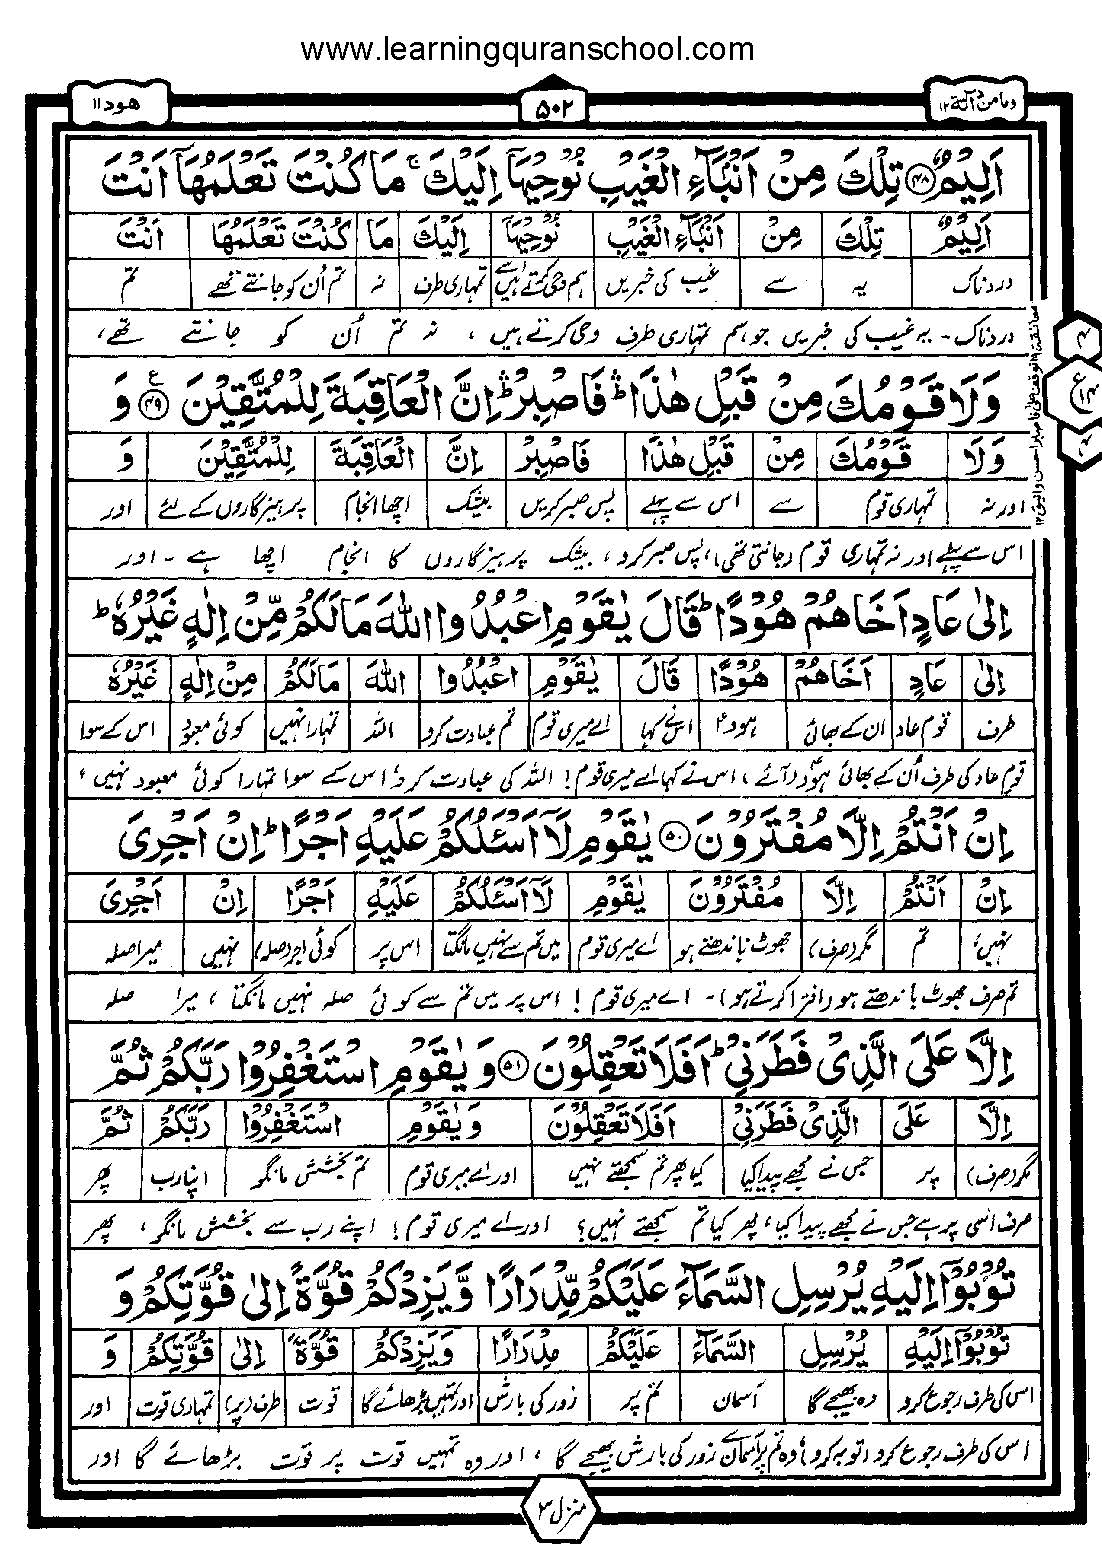 www.learningquranschool.com
وما من دآبة ١٢
۵۰۲
هود ۱۱
اَلِيْمٌ ﴿۴۸﴾ تِلْكَ مِنْ اَنْۢبَآءِ الْغَيْبِ نُوْحِيْهَآ اِلَيْكَ ۚ مَا كُنْتَ تَعْلَمُهَآ اَنْتَ
اَلِيْمٌ تِلْكَ مِنْ اَنْۢبَآءِ الْغَيْبِ نُوْحِيْهَآ اِلَيْكَ مَا كُنْتَ تَعْلَمُهَا اَنْتَ
دردناک یہ سے غیب کی خبریں ہم وحی کرتے ہیں اسے تمہاری طرف نہ تم اُن کو جانتے تھے تم
دردناک - یہ غیب کی خبریں جو ہم تمہاری طرف وحی کرتے ہیں ، نہ تم اُن کو جانتے تھے،
وَلَا قَوْمُكَ مِنْ قَبْلِ هٰذَا ۛ فَاصْبِرْ ۛ اِنَّ الْعَاقِبَةَ لِلْمُتَّقِيْنَ ﴿۴۹﴾ ع وَ
وَلَا قَوْمُكَ مِنْ قَبْلِ هٰذَا فَاصْبِرْ اِنَّ الْعَاقِبَةَ لِلْمُتَّقِيْنَ وَ
اور نہ تمہاری قوم سے اس سے پہلے پس صبر کریں بیشک اچھا انجام پرہیزگاروں کے لئے اور
اس سے پہلے اور نہ تمہاری قوم (جانتی تھی)، پس صبر کرو ، بیشک پرہیزگاروں کا انجام اچھا ہے - اور
۴
ع ۱۴
۴
اِلٰى عَادٍ اَخَاهُمْ هُوْدًا ؕ قَالَ يٰقَوْمِ اعْبُدُوا اللّٰهَ مَا لَكُمْ مِّنْ اِلٰهٍ غَيْرُهٗ ؕ
اِلٰى عَادٍ اَخَاهُمْ هُوْدًا قَالَ يٰقَوْمِ اعْبُدُوا اللّٰهَ مَا لَكُمْ مِنْ اِلٰهٍ غَيْرُهٗ
طرف قوم عاد ان کے بھائی ہود اس نے کہا اے میری قوم تم عبادت کرو اللہ تمہارا نہیں کوئی معبود اس کے سوا
قوم عاد کی طرف اُن کے بھائی ہود (آئے) ، اس نے کہا اے میری قوم! اللہ کی عبادت کرو، اس کے سوا تمہارا کوئی معبود نہیں ،
اِنْ اَنْتُمْ اِلَّا مُفْتَرُوْنَ ﴿۵۰﴾ يٰقَوْمِ لَآ اَسْئَلُكُمْ عَلَيْهِ اَجْرًا ؕ اِنْ اَجْرِىَ
اِنْ اَنْتُمْ اِلَّا مُفْتَرُوْنَ يٰقَوْمِ لَآ اَسْئَلُكُمْ عَلَيْهِ اَجْرًا اِنْ اَجْرِىَ
نہیں تم مگر (صرف) جھوٹ باندھتے ہو اے میری قوم میں تم سے نہیں مانگتا اس پر کوئی اجر (صلہ) نہیں میرا صلہ
تم صرف جھوٹ باندھتے ہو (افترا کرتے ہو) - اے میری قوم ! اس پر میں تم سے کوئی صلہ نہیں مانگتا ، میرا صلہ
اِلَّا عَلَى الَّذِىْ فَطَرَنِىْ ؕ اَفَلَا تَعْقِلُوْنَ ﴿۵۱﴾ وَ يٰقَوْمِ اسْتَغْفِرُوْا رَبَّكُمْ ثُمَّ
اِلَّا عَلَى الَّذِىْ فَطَرَنِىْ اَفَلَا تَعْقِلُوْنَ وَ يٰقَوْمِ اسْتَغْفِرُوْا رَبَّكُمْ ثُمَّ
مگر (صرف) پر جس نے مجھے پیدا کیا کیا پھر تم سمجھتے نہیں اور اے میری قوم تم بخشش مانگو اپنا رب پھر
صرف اسی پر ہے جس نے مجھے پیدا کیا، پھر کیا تم سمجھتے نہیں؟ اور اے میری قوم! اپنے رب سے بخشش مانگو ، پھر
تُوْبُوْٓا اِلَيْهِ يُرْسِلِ السَّمَآءَ عَلَيْكُمْ مِّدْرَارًا وَّ يَزِدْكُمْ قُوَّةً اِلٰى قُوَّتِكُمْ وَ
تُوْبُوْٓا اِلَيْهِ يُرْسِلِ السَّمَآءَ عَلَيْكُمْ مِدْرَارًا وَ يَزِدْكُمْ قُوَّةً اِلٰى قُوَّتِكُمْ وَ
اس کی طرف رجوع کرو وہ بھیجے گا آسمان تم پر زور کی بارش اور تمہیں بڑھائے گا قوت طرف (پر) تمہاری قوت اور
اس کی طرف رجوع کرو (توبہ کرو) وہ تم پر آسمان سے زور کی بارش بھیجے گا ، اور وہ تمہیں قوت پر قوت بڑھائے گا اور
منزل ۳